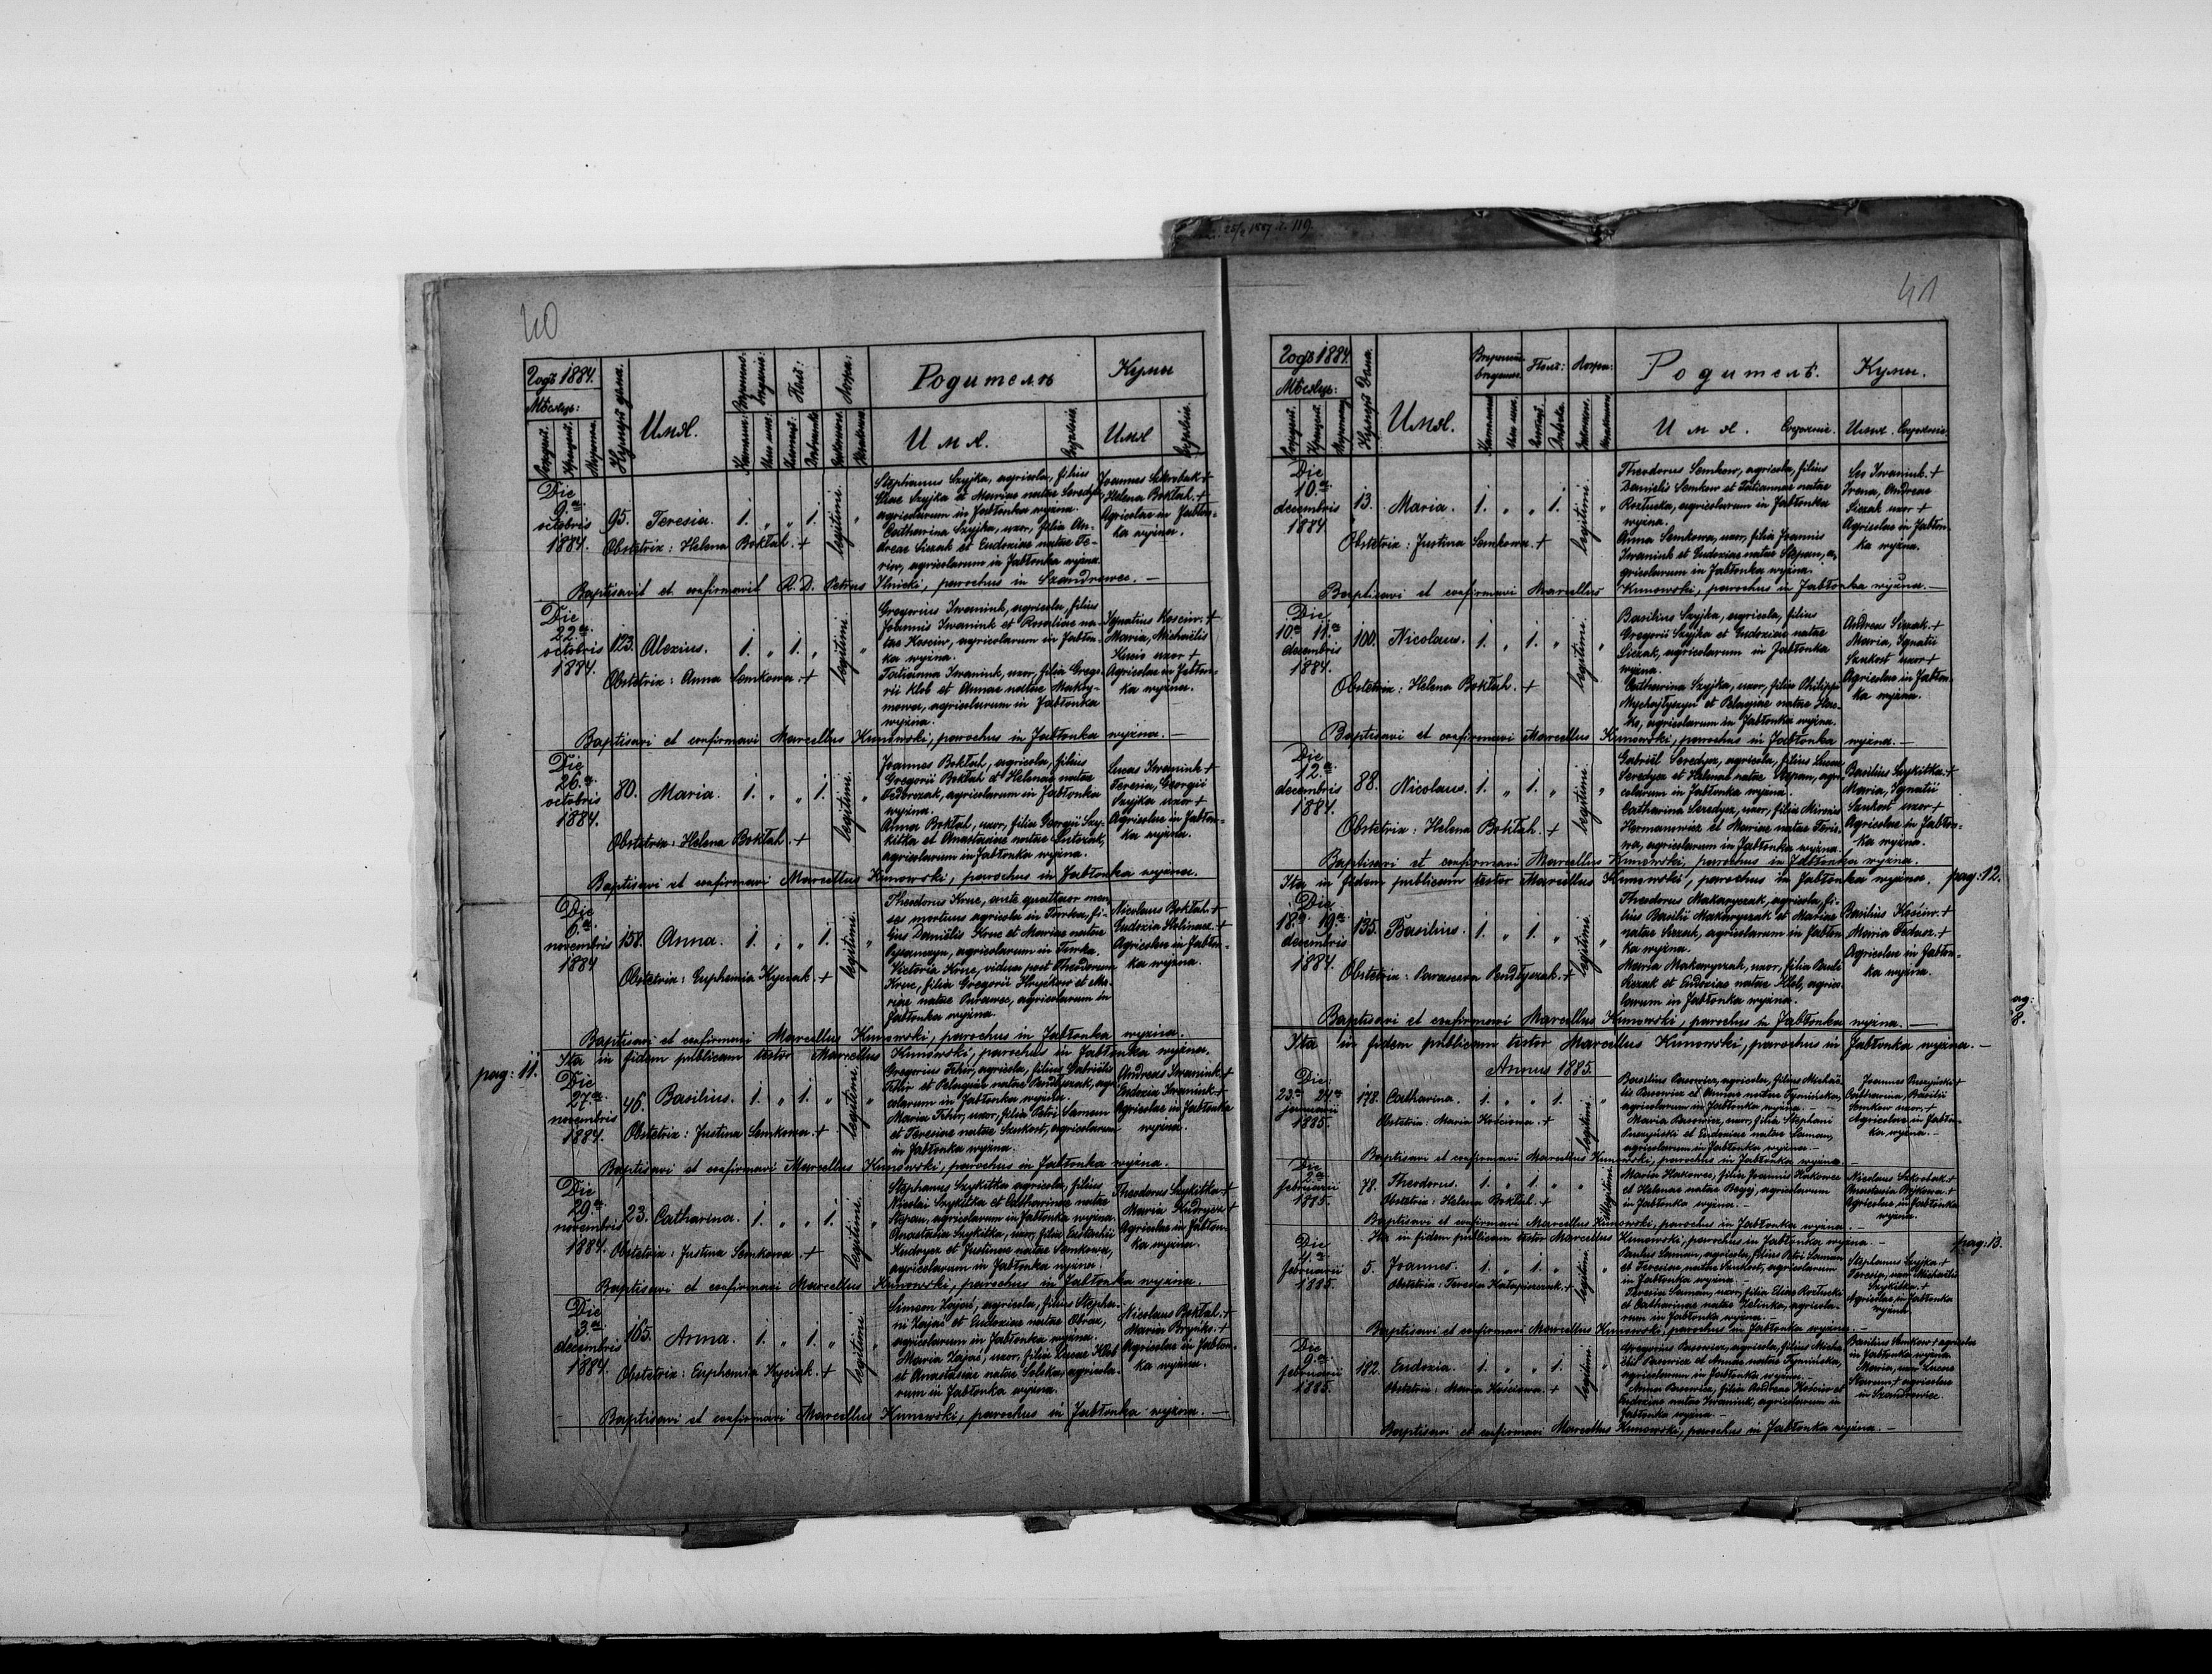 40
Годъ 1884.
Имя.
Родитель
Купы
Имя.
Имя
Die
9.a
octobris
1884.
95. Teresia. 1. „ „ 1. legitimi. „
Obstetrix: Helena Boktah. +
Stephanus Szyjka, agricola, filius
Eliae Szyjka et Mariae natae Seredycz,
agricolarum in Jabłonka wyżna.
Catharina Szyjka, uxor, filia An-
dreae Siczak et Eudoxiae natae
agricolarum in Jabłonka wyżna.
Joannes Sekrobak +
Helena Boktah. +
Agricolae in Jabłon-
ka wyżna.
Baptisavit et confirmavit R. D. Petrus Ilnicki, parochus in Szandrowec. —
Die
22.a
octobris
1884.
123. Alexius. 1. „ 1. „ legitimi. „
Obstetrix: Anna Semkowa. +
Gregorius Iwanink, agricola, filius
Joannis Iwanink et Rosaliae na-
tae Kosciw, agricolarum in Jabłon-
ka wyżna.
Tatianna Iwanink, uxor, filia Grego-
rii Klob et Annae natae Maksy-
mowa, agricolarum in Jabłonka
wyżna.
Ignatius Kosciw. +
Maria, Michaëlis
Kucio uxor +
Agricolae in Jabłon-
ka wyżna.
Baptisavi et confirmavi Marcellus Kunowski, parochus in Jabłonka wyżna. —
Die
26.a
octobris
1884.
80. Maria. 1. „ „ 1. legitimi. „
Obstetrix: Helena Boktah. +
Joannes Boktah, agricola, filius
Gregorii Boktah et Helenae natae
Fedorczak, agricolarum in Jabłonka
wyżna.
Anna Boktah, uxor, filia Georgii Szy-
kitka et Anastasiae natae
agricolarum in Jabłonka wyżna.
Lucas Iwanink +
Teresia, Georgii
Szyjka uxor +
Agricolae in Jabłon-
ka wyżna.
Baptisavi et confirmavi Marcellus Kunowski, parochus in Jabłonka wyżna.
Die
6.a
novembris
1884
158. Anna. 1. „ „ 1. legitimi. „
Obstetrix: Euphemia Kyciak. +
Theodorus Kruc, ante quattuor men-
ses mortuus agricola in Turka, fi-
lius Daniëlis Kruc et Mariae natae
agricolarum in Turka.
Victoria Kruc, vidua post Theodorum
Kruc, filia Gregorii Hryckow et Ma-
riae natae Purawec, agricolarum in
Jabłonka wyżna.
Nicolaus Boktah. +
Eudoxia Holinacz. +
Agricolae in Jabłon-
ka wyżna.
Baptisavi et confirmavi Marcellus Kunowski, parochus in Jabłonka wyżna.
Ita in fidem publicam testor Marcellus Kunowski, parochus in Jabłonka wyżna.
pag: 11.
Die
27.a
novembris
1884.
46. Basilius. 1. „ 1. „ legitimi. „
Obstetrix: Justina Semkowa. +
Gregorius Fehir, agricola, filius Gabriëlis
Fehir et Pelagiae natae Pendlyszak, agri-
colarum in Jabłonka wyżna.
Maria Fehir, uxor, filia Petri Saman
et Teresiae natae Szukost, agricolarum
in Jabłonka wyżna.
Andreas Iwanink +
Eudoxia Iwanink +
Agricolae in Jabłonka
wyżna.
Baptisavi et confirmavi Marcellus Kunowski, parochus in Jabłonka wyżna.
Die
29.a
novembris
1884.
23. Catharina. 1. „ „ 1. legitimi. „
Obstetrix: Justina Semkowa. +
Stephanus Szykitka agricola, filius
Nicolai Szykitka et Catharinae natae
Stepan, agricolarum in Jabłonka wyżna.
Anastasia Szykitka, uxor, filia Eustachii
Kudrycz et Justinae natae Semkowa,
agricolarum in Jabłonka wyżna.
Theodorus Szykitka +
Maria Kudrycz +
Agricolae in Jabłon-
ka wyżna.
Baptisavi et confirmavi Marcellus Kunowski, parochus in Jabłonka wyżna.
Die
3.a
decembris
1884.
165. Anna. 1. „ 1. „ legitimi. „
Obstetrix: Euphemia Kyciak. +
Simeon Zajać, agricola, filius Stepha-
ni Zajać et Eudoxiae natae Obraz,
agricolarum in Jabłonka wyżna.
Maria Zajać, uxor, filia Lucae Klob
et Anastasiae natae Solska, agricola-
rum in Jabłonka wyżna.
Nicolaus Boktah. +
Maria Bryńko. +
Agricolae in Jabłon-
ka wyżna.
Baptisavi et confirmavi Marcellus Kunowski, parochus in Jabłonka wyżna. —
41
Годъ 1884.
Имя.
Родитель.
Купы.
Имя.
Имя.
Die
10.a
decembris
1884
13. Maria. 1. „ „ 1. legitimi. „
Obstetrix: Justina Semkowa. +
Theodorus Semkow, agricola, filius
Danielis Semkow et Tatiannae natae
Rozłucka, agricolarum in Jabłonka
wyżna.
Anna Semkowa, uxor, filia Joannis
Iwanink et Eudoxiae natae Stepan, a-
gricolarum in Jabłonka wyżna.
Leo Iwanink. +
Irena, Andreae
Siczak uxor +
Agricolae in Jabłon-
ka wyżna.
Baptisavi et confirmavi Marcellus Kunowski, parochus in Jabłonka wyżna. —
Die
10.a 11.a
decembris
1884.
100. Nicolaus. 1. „ 1. „ legitimi. „
Obstetrix: Helena Boktah. +
Basilius Szyjka, agricola, filius
Gregorii Szyjka et Eudoxiae natae
Siczak, agricolarum in Jabłonka
wyżna.
Catharina Szyjka, uxor, filia Philippi
Mychajłyszyn et Pelagiae natae Hac-
ko, agricolarum in Jabłonka wyżna.
Andreas Siczak +
Maria, Ignatii
Szukost uxor +
Agricolae in Jabłon-
ka wyżna.
Baptisavi et confirmavi Marcellus Kunowski, parochus in Jabłonka wyżna. —
Die
12.a
decembris
1884.
88. Nicolaus. 1. „ 1. „ legitimi. „
Obstetrix: Helena Boktah. +
Gabriël Seredycz, agricola, filius Lucae
Seredycz et Helenae natae Stepan, agri-
colarum in Jabłonka wyżna.
Catharina Seredycz, uxor, filia Mironis
Hermanowicz et Mariae natae Feris-
na, agricolarum in Jabłonka wyżna.
Basilius Szykitka. +
Maria, Ignatii
Szukost uxor +
Agricolae in Jabłon-
ka wyżna.
Baptisavi et confirmavi Marcellus Kunowski, parochus in Jabłonka wyżna.
Ita in fidem publicam testor Marcellus Kunowski, parochus in Jabłonka wyżna. pag: 12.
Die
18.a 19.a
decembris
1884.
135. Basilius. 1. „ 1. „ legitimi. „
Obstetrix: Parascena Pendlyszak. +
Theodorus Makaryczak, agricola, fi-
lius Basilii Makaryczak et Mariae
natae Rezak, agricolarum in Jabłon-
ka wyżna.
Maria Makaryczak, uxor, filia Pauli
Rezak et Eudoxiae natae Klob, agrico-
larum in Jabłonka wyżna.
Basilius Kościw. +
Maria Fedacz. +
Agricolae in Jabłon-
ka wyżna.
Baptisavi et confirmavi Marcellus Kunowski, parochus in Jabłonka wyżna. —
ag:
8.
Ita in fidem publicam testor Marcellus Kunowski, parochus in Jabłonka wyżna. —
Annus 1885.
Die
23.a 24.a
januarii
1885.
178. Catharina. 1. „ „ 1. legitimi. „
Obstetrix: Maria Kościowa. +
Basilius Pasewicz, agricola, filius Michaë-
lis Pasewicz et Annae natae Tymińska,
agricolarum in Jabłonka wyżna.
Maria Pasewicz, uxor, filia Stephani
Puszyński et Eudoxiae natae Saman,
agricolarum in Jabłonka wyżna. —
Joannes Puszyński +
Catharina, Basilii
Semkow uxor. +
Agricolae in Jabłon-
ka wyżna. —
Baptisavi et confirmavi Marcellus Kunowski, parochus in Jabłonka wyżna. —
Die
2.a
februarii
1885.
78. Theodorus. 1. „ 1. „ „ Illegitimi.
Obstetrix: Helena Boktah. +
Maria Hakowec, filia Joannis Hakowec
et Helenae natae Bryg, agricolarum
in Jabłonka wyżna. —
Nicolaus Sekrobak +
Anastasia Bojkowa +
Agricolae in Jabłonka
wyżna.
Baptisavi et confirmavi Marcellus Kunowski, parochus in Jabłonka wyżna. —
Ita in fidem publicam testor Marcellus Kunowski, parochus in Jabłonka wyżna. — pag: 13.
Die
4.a
februarii
1885.
5. Joannes. 1. „ 1. „ legitimi. „
Obstetrix: Teresia Hatapiaczak. +
Paulus Saman, agricola, filius Petri Saman
et Teresiae natae Szukost, agricolarum
in Jabłonka wyżna. —
Teresia Saman, uxor, filia Eliae Rozłucki
et Catharinae natae Zelinka, agricola-
rum in Jabłonka wyżna. —
Stephanus Szyjka +
Teresia, uxor Michaëlis
Szykitka. +
Agricolae in Jabłonka
wyżna.
Baptisavi et confirmavi Marcellus Kunowski, parochus in Jabłonka wyżna. —
Die
9.a
februarii
1885.
182. Eudoxia. 1. „ „ 1. legitimi. „
Obstetrix: Maria Kościowa. +
Gregorius Pasewicz, agricola, filius Micha-
ëlis Pasewicz et Annae natae Tymińska,
agricolarum in Jabłonka wyżna. —
Anna Pasewicz, filia Andreae Kościw et
Eudoxiae natae Iwanink, agricolarum in
Jabłonka wyżna. —
Basilius Semkow + agricola
in Jabłonka wyżna.
Maria, uxor Lucae
+ agricolae
in Szandrowiec.
Baptisavi et confirmavi Marcellus Kunowski, parochus in Jabłonka wyżna. —